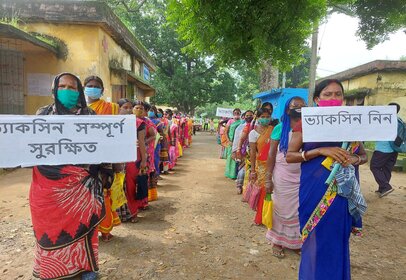 ভ্যাকসিন সম্পূর্ণ
সুরক্ষিত
ভ্যাকসিন নিন